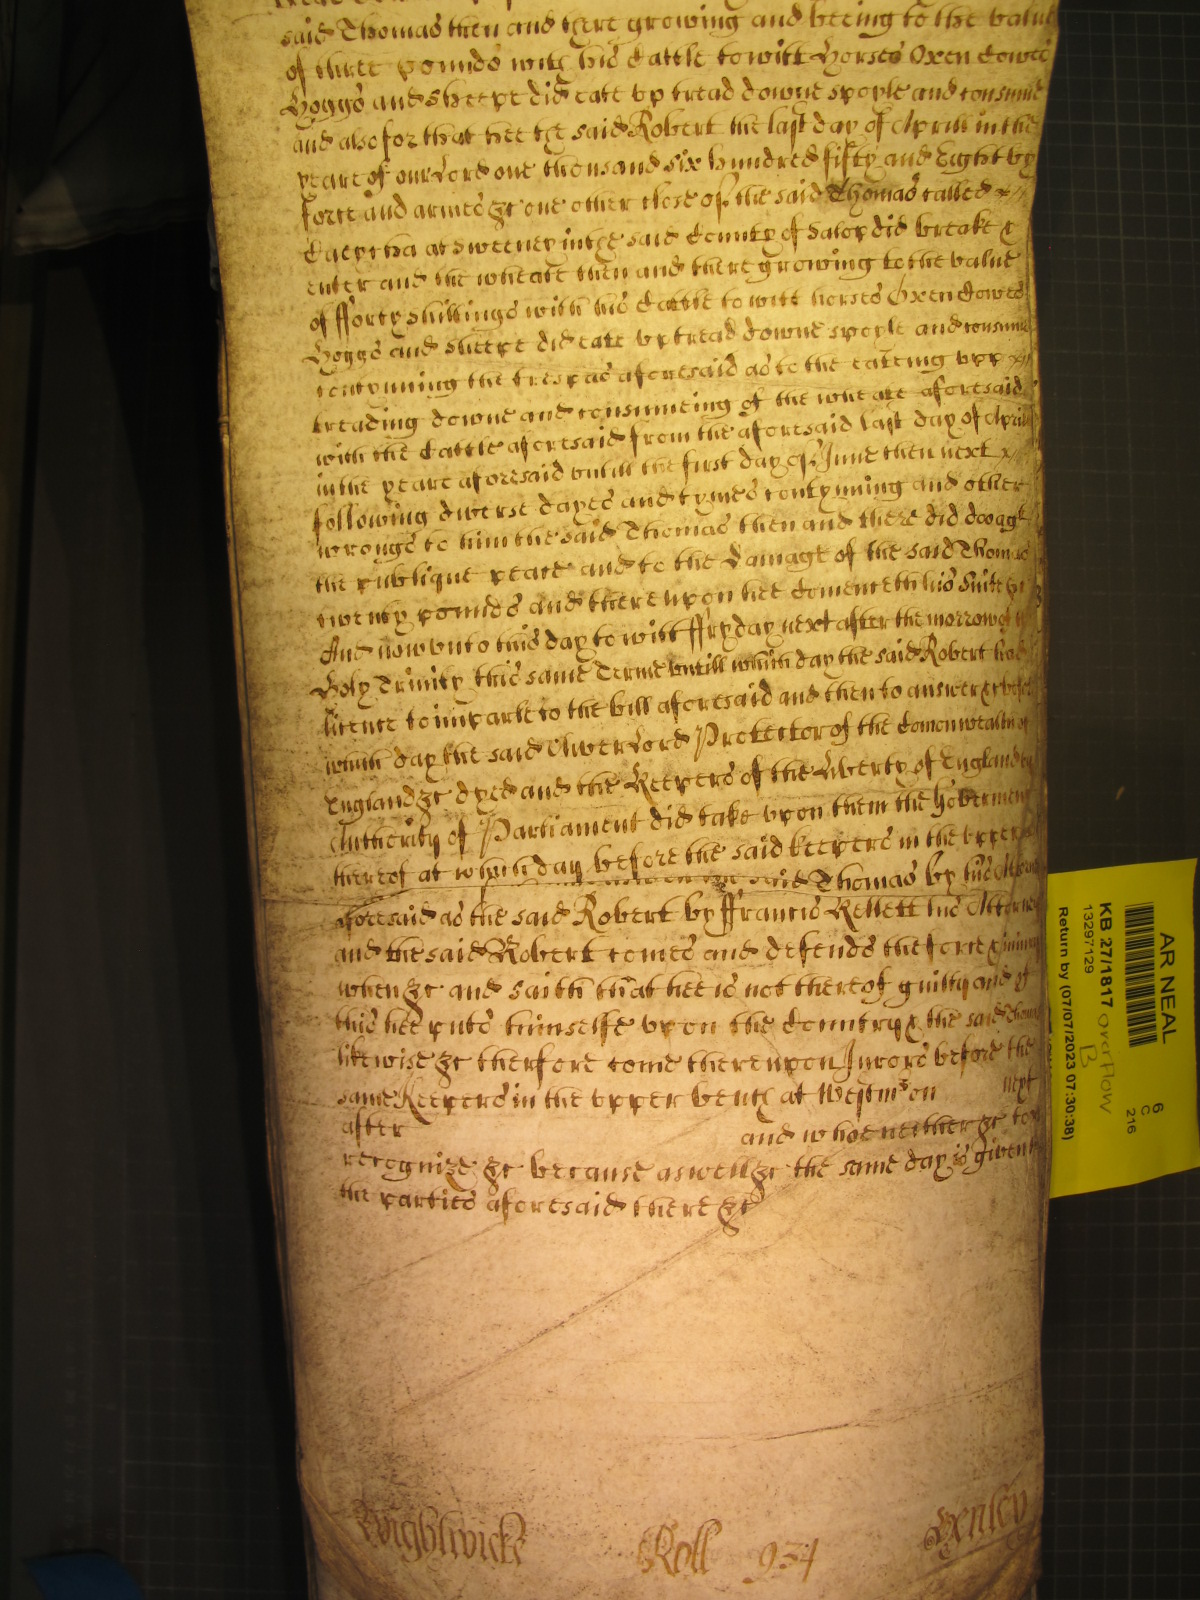 said Thomas then and there growing and beeing to the value
of three pounds with his Cattle to witt Horses Oxen Cowes
Hoggs and Sheepe did eate up tread downe spoyle and consume
and also for that hee the said Robert the last day of Aprill in the
yeare of our Lord one thousand six hundred fifty and Eight by
force and armes &c one other close of the said Thomas called
at Sweeney in the said County of Salop did breake &
enter and the wheate then and there growing to the value
of fforty shillings with his Cattle to witt horses Oxen Cowes
Hoggs and sheepe did eate up tread downe spoyle and consume
contynuing the trespas aforesaid as to the eateing upp
treading downe and consumeing of the wheate aforesaid
with the Cattle aforesaid from the aforesaid last day of Aprill
in the yeare aforesaid untill the first day of June then next
following diverse dayes and tymes contynuing and other
wrongs to him the said Thomas then and there did do agt
the publique peace and to the Damage of the said Thomas
twenty pounds and thereupon hee Comenceth his Suite &c
And now unto this day to witt ffryday next after the morrow of the
Holy Trinity this same Terme untill which day the said Robert had
licence to imparle to the bill aforesaid and then to answer &c before
which day the said Oliver Lord Protector of the Comonwealth of
England &c dyed and the Keepers of the Liberty of England by
Authority of Parliament did take upon them the Goverment
thereof at which day before the said keepers in the upper
said Thomas by his Attorney
aforesaid as the said Robert by ffrancis Kellett his Attorney
and the said Robert comes and defends the force & iniury
when &c and saith that hee is not thereof guilty and of
this hee puts himselfe upon the Country & the said Thomas
likewise &c therfore come thereupon Jurors before the
same Keepers in the upper bench at Westmr on next
after and whoe neither &c to
recognize &c because aswell &c the same day is given to
the parties aforesaid there &c
Wightwicke Roll 934
AR NEAL
6
C
216
KB 27/1817 overflow
B
13297129
Return by (07/07/2023 07:30:38)